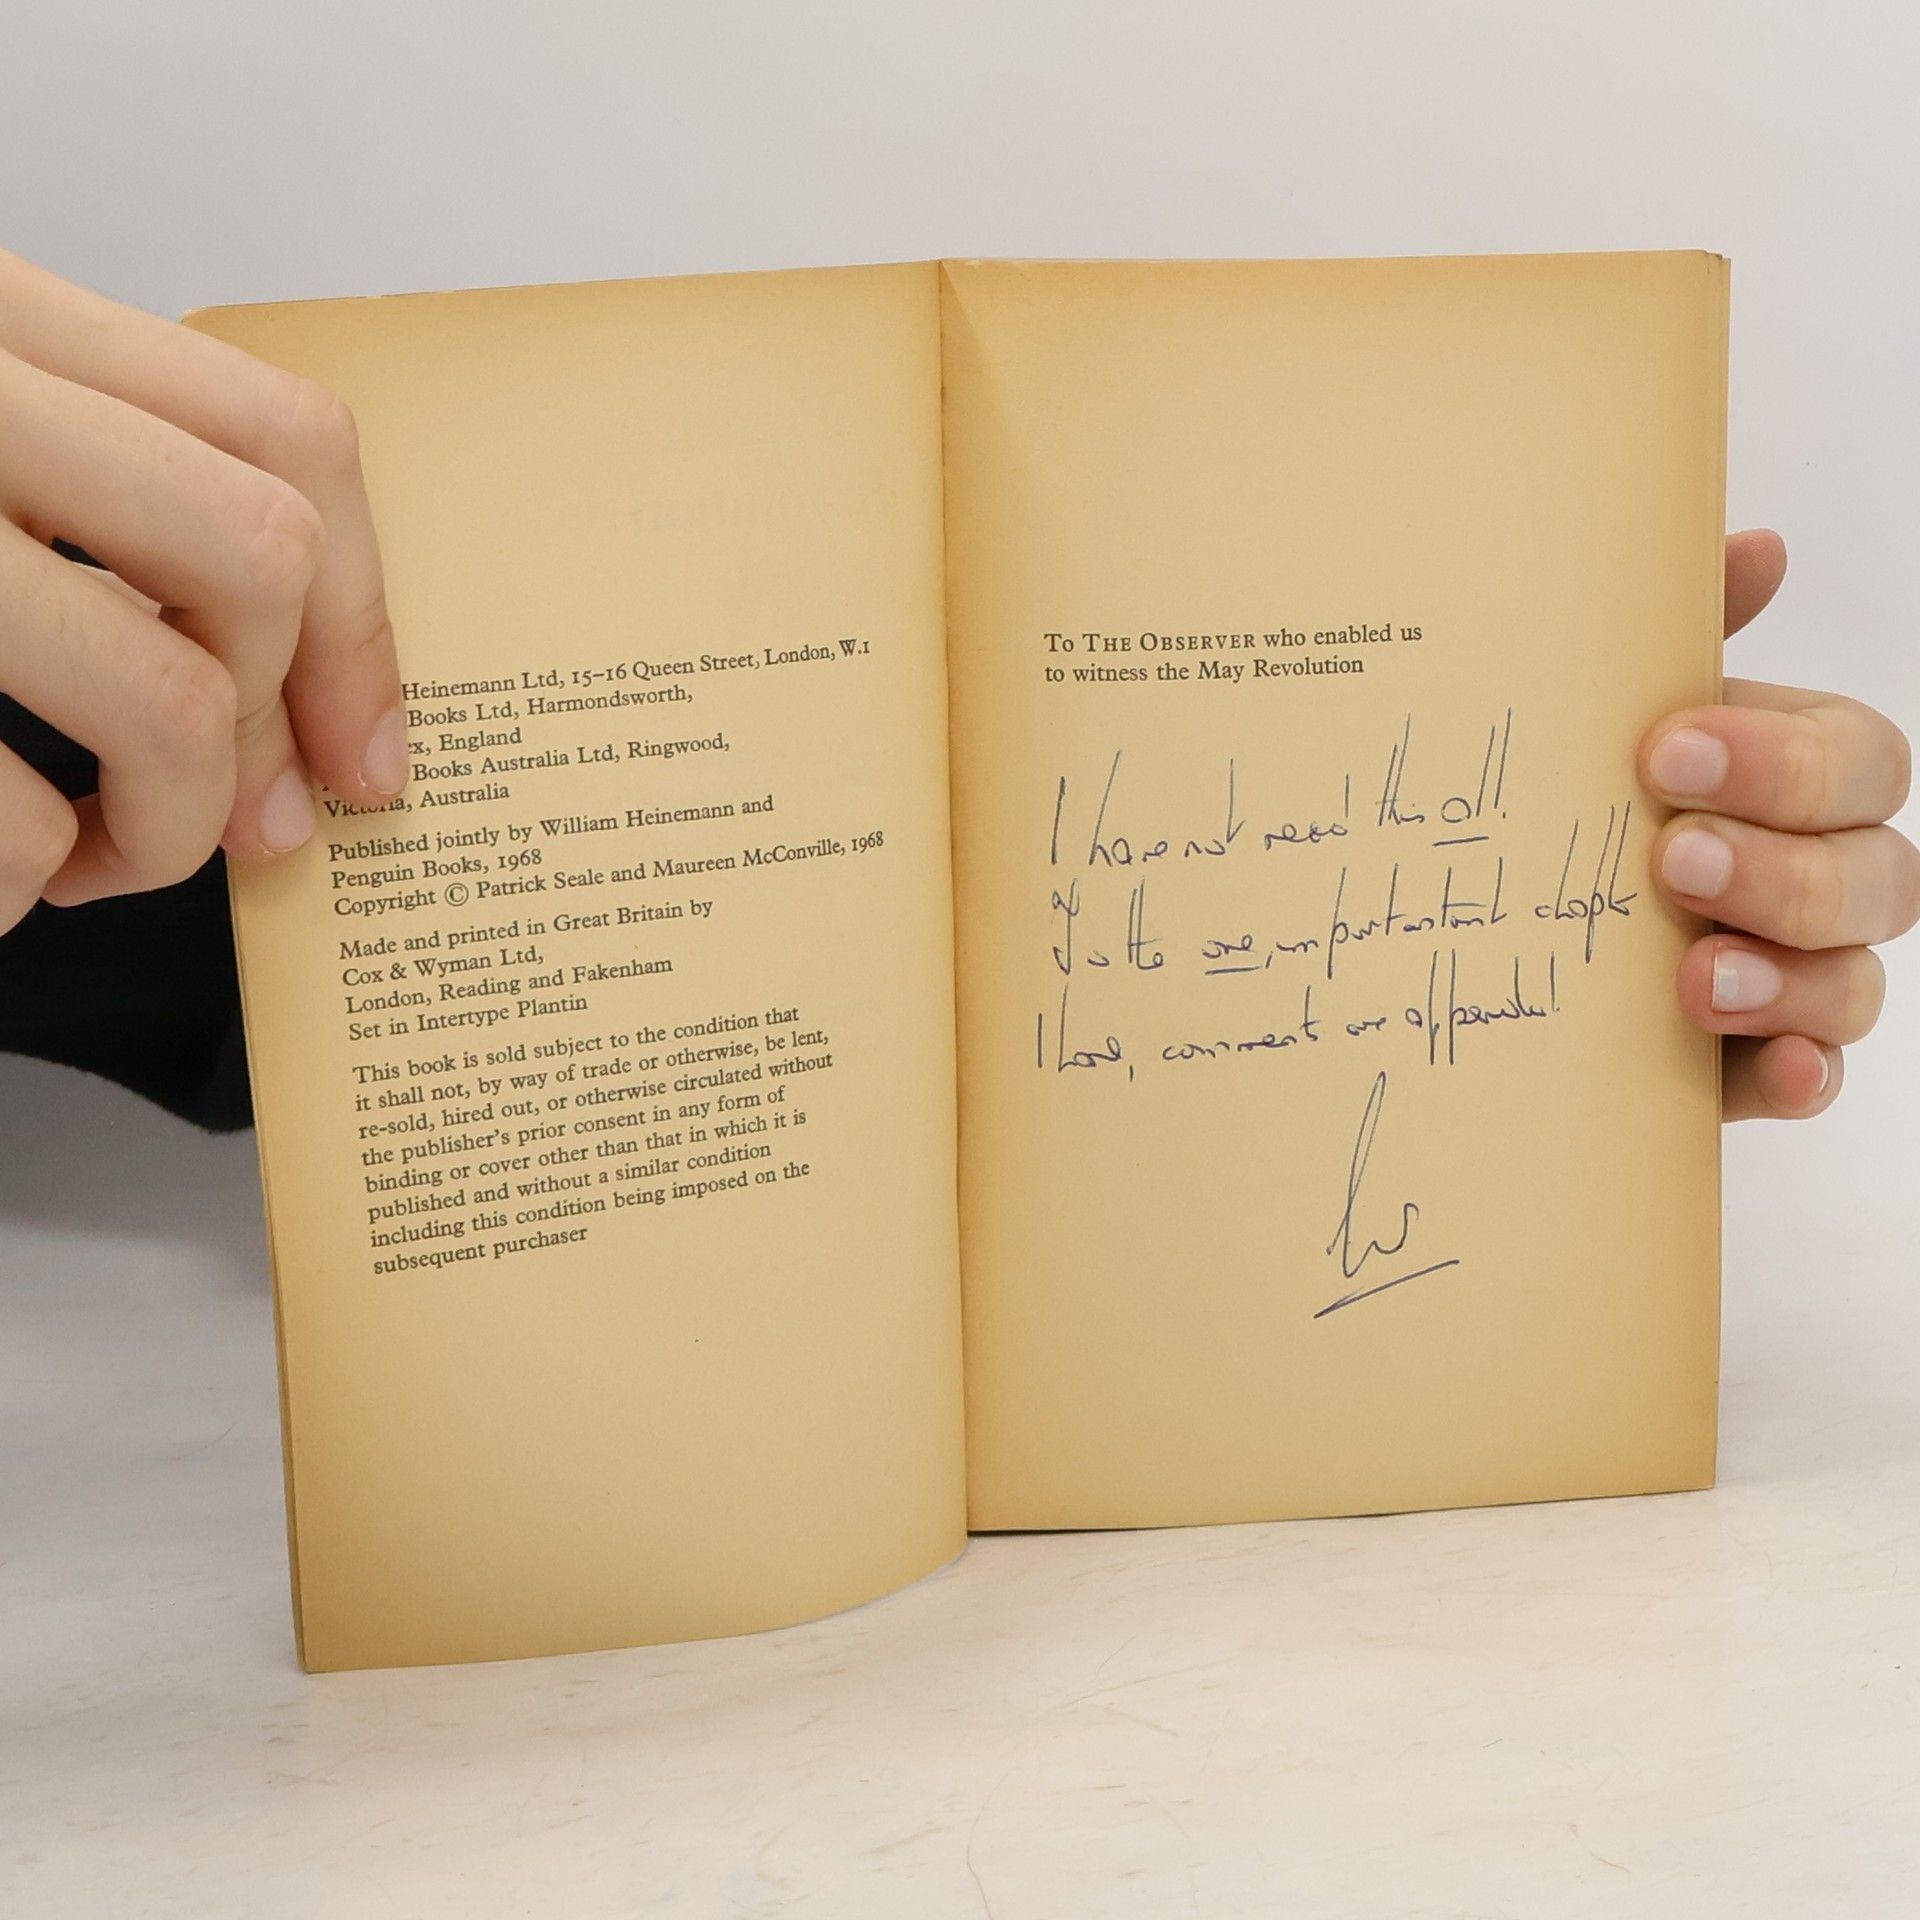 Heinemann Ltd, 15–16 Queen Street, London, W.1
Books Ltd, Harmondsworth,
ex, England
Books Australia Ltd, Ringwood,
Victoria, Australia
Published jointly by William Heinemann and
Penguin Books, 1968
Copyright © Patrick Seale and Maureen McConville, 1968
Made and printed in Great Britain by
Cox & Wyman Ltd,
London, Reading and Fakenham
Set in Intertype Plantin
This book is sold subject to the condition that
it shall not, by way of trade or otherwise, be lent,
re-sold, hired out, or otherwise circulated without
the publisher's prior consent in any form of
binding or cover other than that in which it is
published and without a similar condition
including this condition being imposed on the
subsequent purchaser
To THE OBSERVER who enabled us
to witness the May Revolution
I have not read this all!
the one, important
I have, comments are appended!